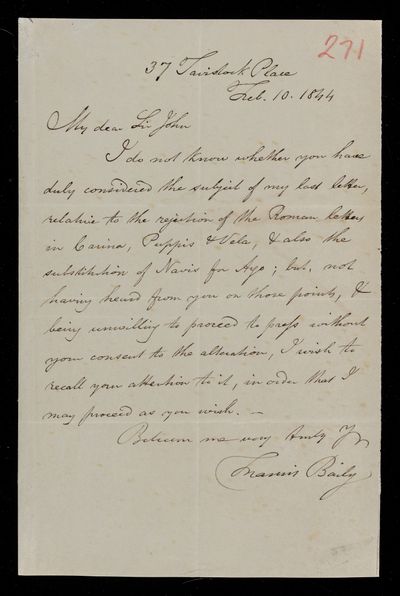 271
37 Tavistock Place
Feb. 10. 1844
My dear Sir John
I do not know whether you have
duly considered the subject of my last letter,
relative to the rejection of the Roman letters
in Carina, Puppis & Vela, & also the
substitution of Navis for Argo; but, not
having heard from you on those points, &
being unwilling to proceed to press without
your consent to the alteration, I wish to
recall your attention to it, in order that I
may proceed as you wish. —
Believe me very truly Yrs
Francis Baily